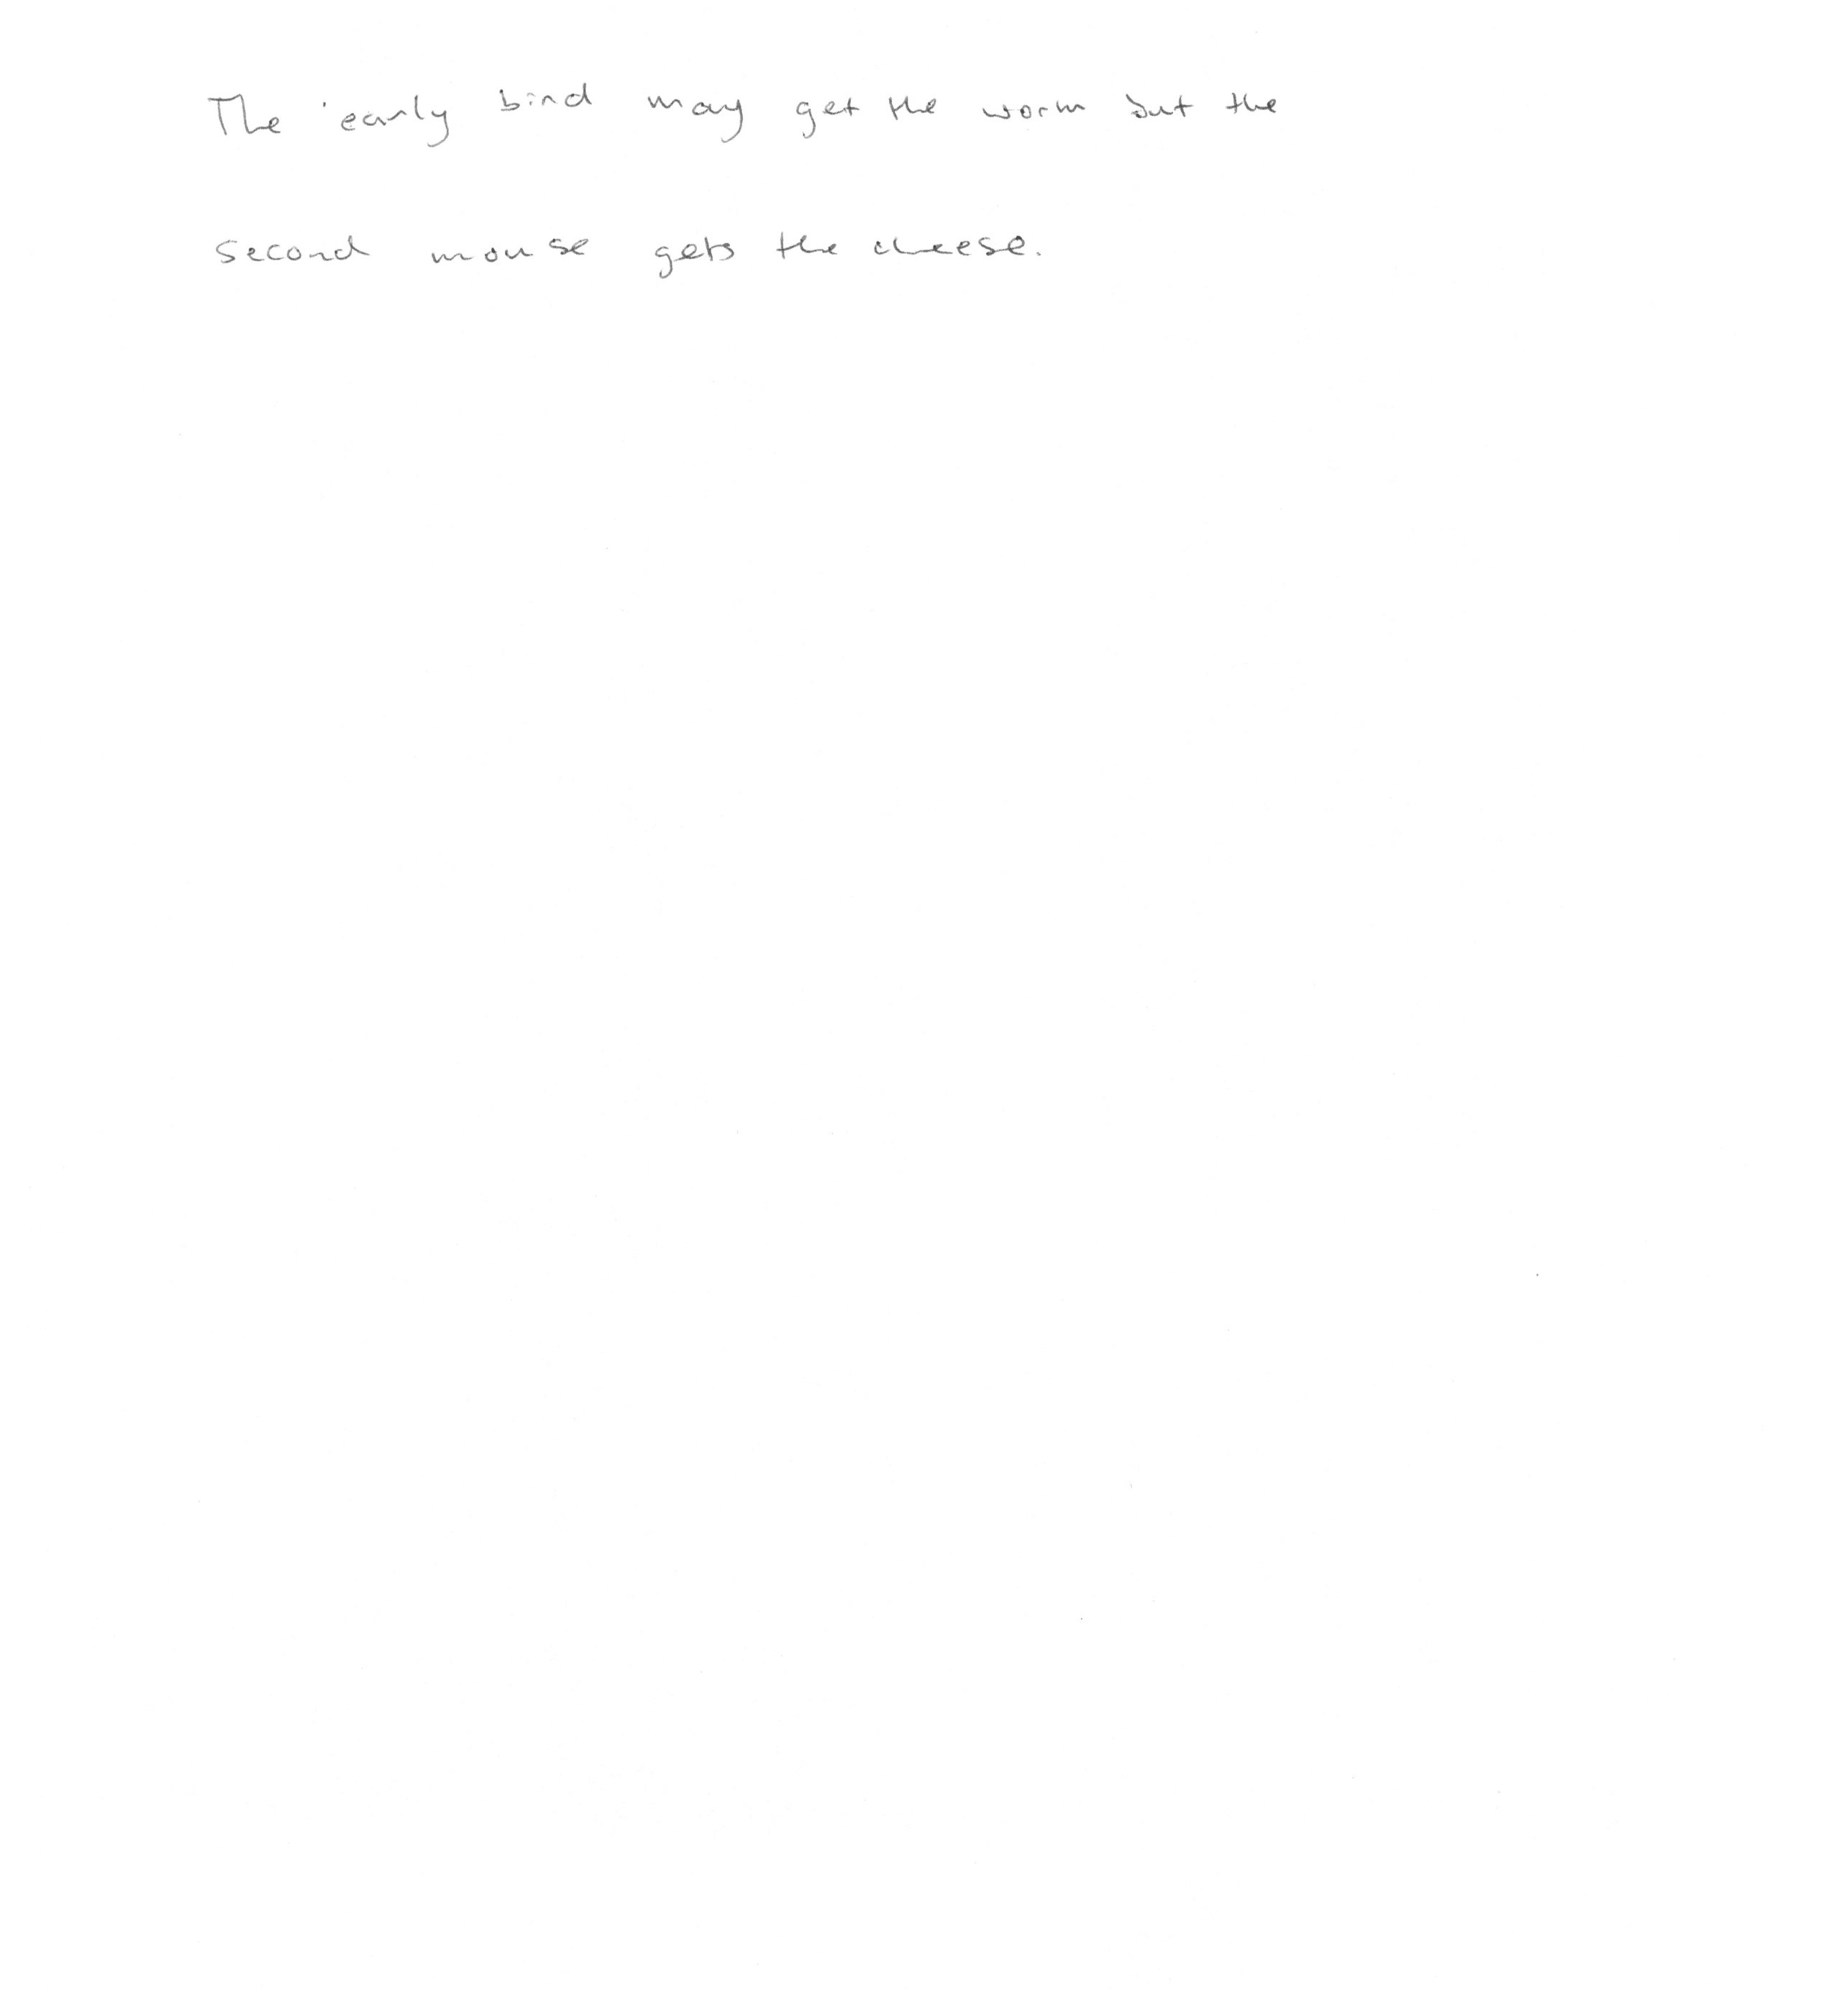 The early bird may get the worm but the
second mouse gets the cheese.